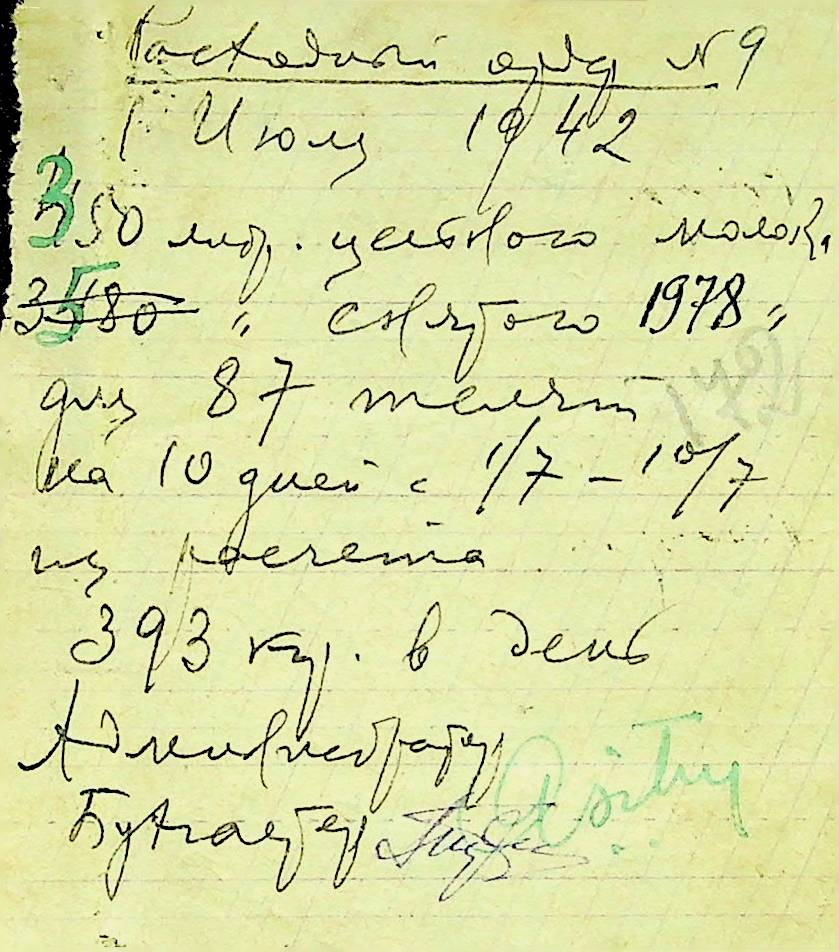 Расходный орд N 9
1 Июля 1942
350 литр. цельного молока
5 3180 " снятого 1978 "
для 87 телят
172
на 10 дней с 1/7 – 10/7
из расчета
393 кгр. в день
Администратор
Бухгалтер